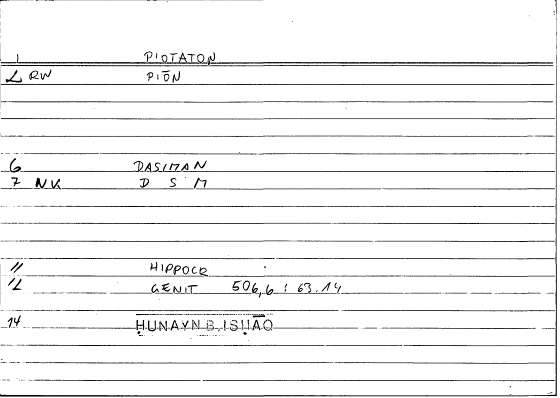 1 PIOTATON
2 RW PIŌN
6 DASIMAN
7 NK D S M
11 HIPPOCR
12 GENIT 506,6 : 63.14
14 ḤUNAYN B. ISḤĀQ